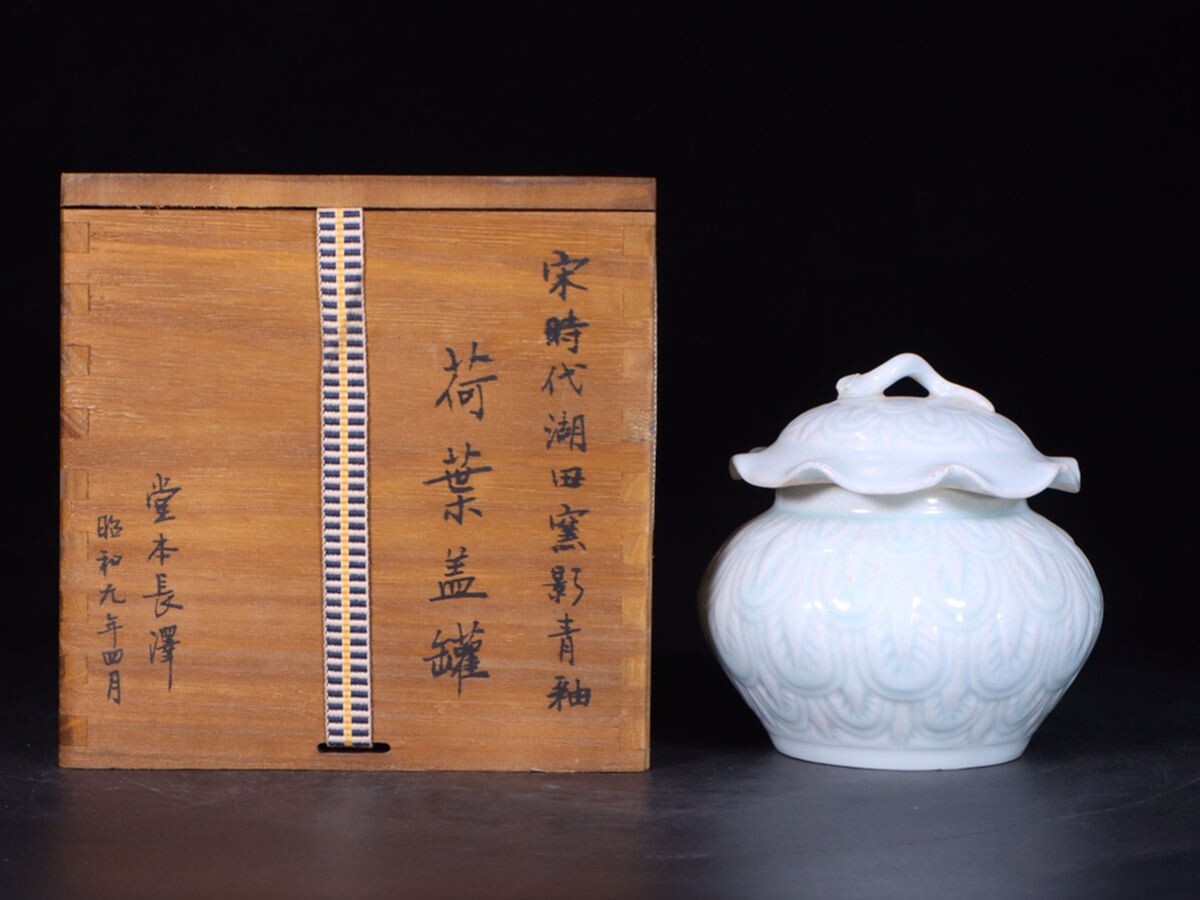 宋時代湖田窯影青釉
荷葉盖罐
堂本長澤
昭和九年四月